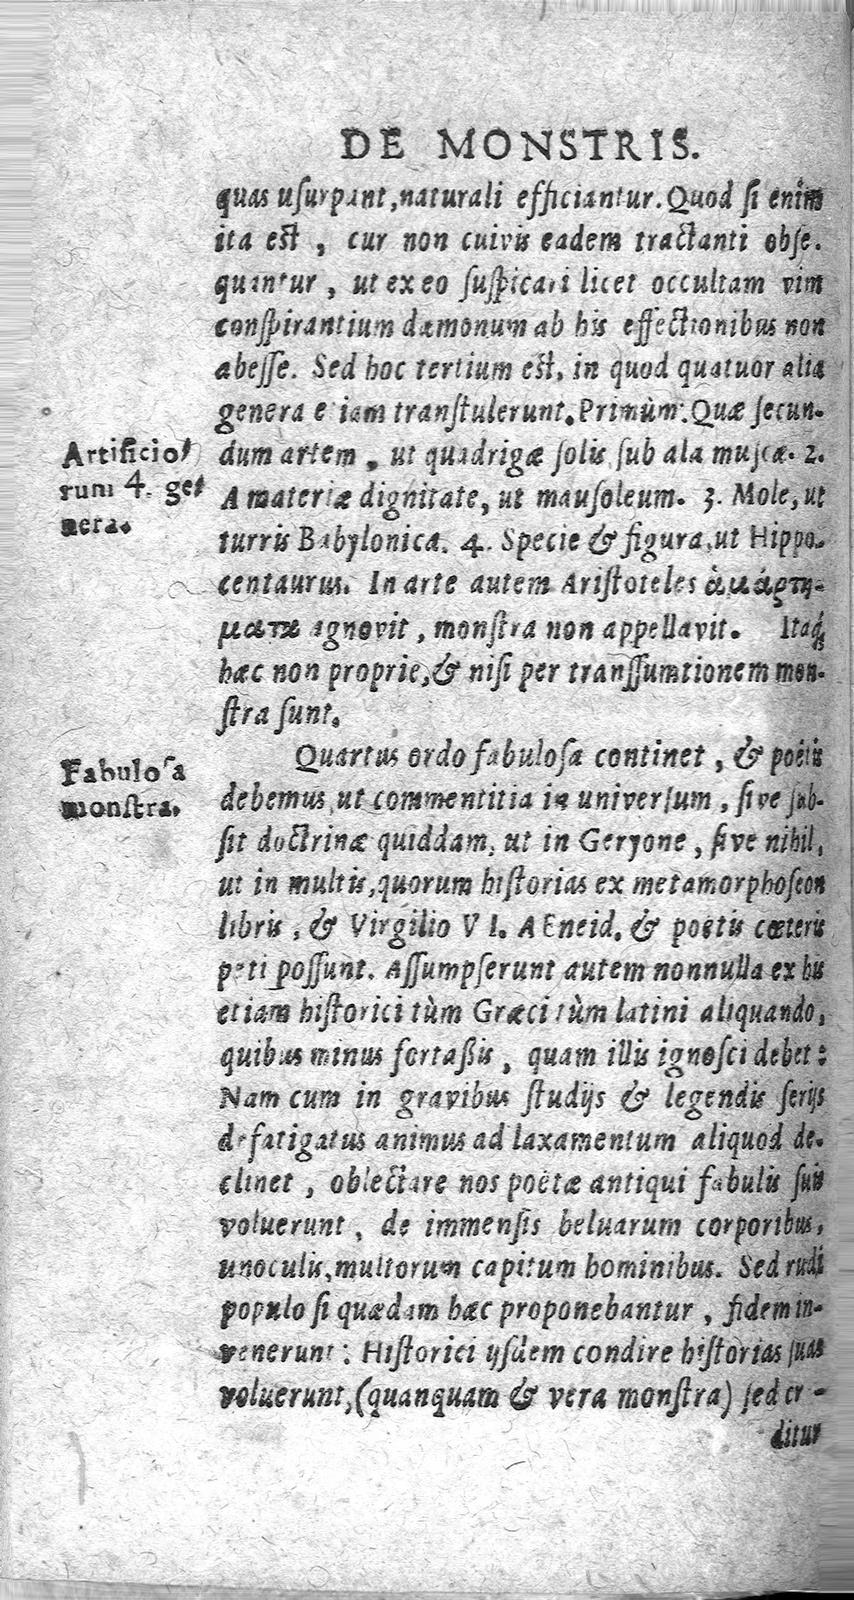 DE MONSTRIS.
quas uſurpant, naturali efficiantur. Quod ſi enim
ita eſt , cur non cuivis eadem tractanti obſe-
quantur , ut ex eo ſuſpicari licet occultam vim
conſpirantium dæmonum ab his effectionibus non
abeſſe. Sed hoc tertium eſt, in quod quatuor alia
genera etiam tranſtulerunt. Primùm: Quæ ſecun-
Artificioſ
rum 4. ge⸗
nera.
dum artem , ut quadrigæ ſolis ſub ala muſcæ. 2.
A materiæ dignitate, ut mauſoleum. 3. Mole, ut
turris Babylonica. 4. Specie & figura, ut Hippo-
centaurus. In arte autem Ariſtoteles ἁμάρτη-
ματα agnovit , monſtra non appellavit. Itaq́;
hæc non proprie, & niſi per tranſſumtionem mon-
ſtra ſunt.
Fabuloſa
monſtra.
Quartus ordo fabuloſa continet , & poëtis
debemus, ut commentitia in univerſum , ſive ſub-
ſit doctrinæ quiddam, ut in Geryone , ſive nihil,
ut in multis, quorum hiſtorias ex metamorphoſeon
libris , & Virgilio VI. AEneid. & poëtis cœteris
peti poſſunt. Aſſumpſerunt autem nonnulla ex his
etiam hiſtorici tùm Græci tùm latini aliquando,
quibus minus fortaßis , quam illis ignoſci debet :
Nam cum in gravibus ſtudijs & legendis ſerijs
defatigatus animus ad laxamentum aliquod de-
clinet , oblectare nos poëtæ antiqui fabulis ſuis
voluerunt , de immenſis beluarum corporibus,
unoculis, multorum capitum hominibus. Sed rudi
populo ſi quædam hæc proponebantur , fidem in-
venerunt : Hiſtorici ijſdem condire hiſtorias ſuas
voluerunt, (quanquam & vera monſtra) ſed cr -
ditur